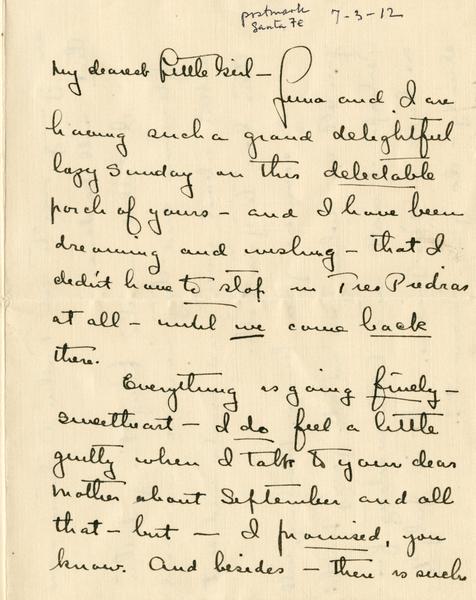 postmark 7-3-12
Santa Fe
My dearest Little Girl—
Luna and I are
having such a grand delightful
lazy Sunday on this delectable
porch of yours — and I have been
dreaming and wishing — that I
didn't have to stop in Tres Piedras
at all — until we came back
there.
Everything is going finely—
sweetheart — I do feel a little
guilty when I talk to your dear
mother about September and all
that — but — I promised, you
know. And besides — there is such